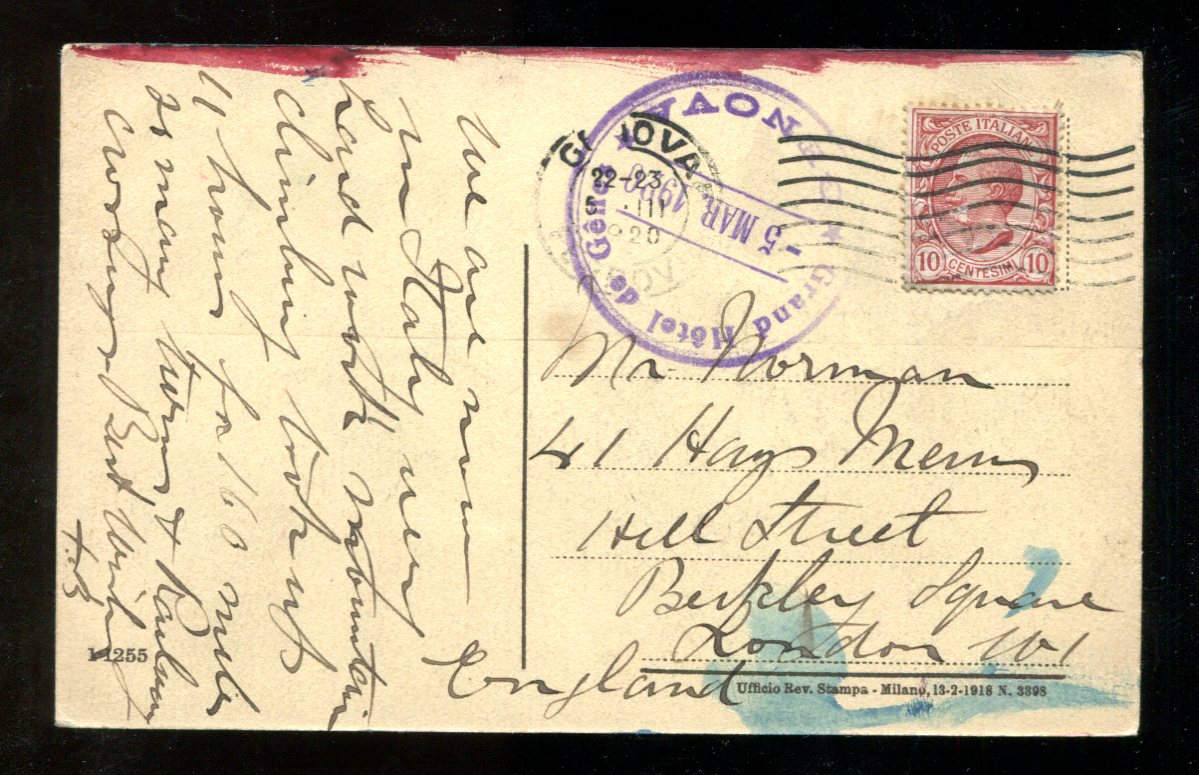 We are now
in Italy very
hard work mountain
climbing took us
11 hours for 160 miles
as many turns & Railway
crossings Best Wishes
1-1255
GENOVA
22-23
III
920
GENOVA
Grand Hôtel de Gênes
-5 MAR. 1920
POSTE ITALIANE
10 CENTESIMI 10
Mr Norman
41 Hays Mews
Hill Street
Berkley Square
London W1
England
Ufficio Rev. Stampa - Milano, 13-2-1918 N. 3398